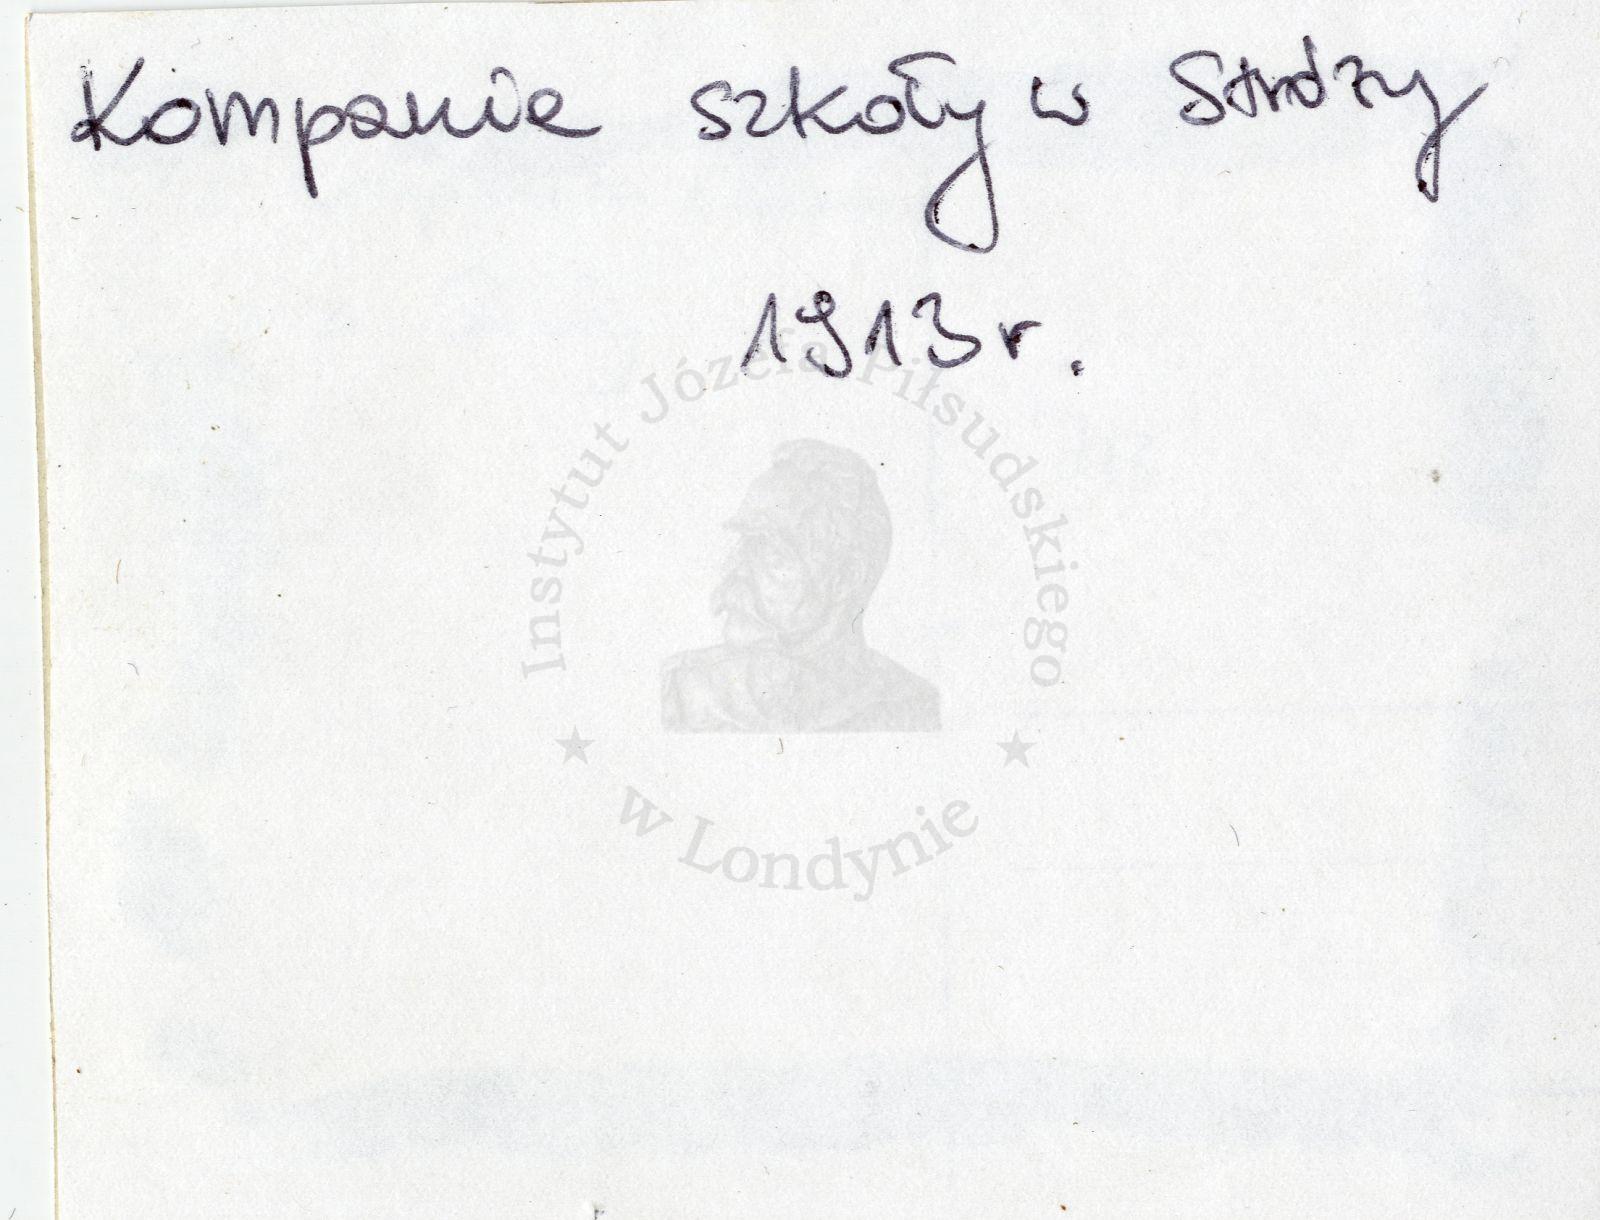 Kompanie szkoły w Stróży
1913 r.
Instytut Józefa Piłsudskiego
w Londynie